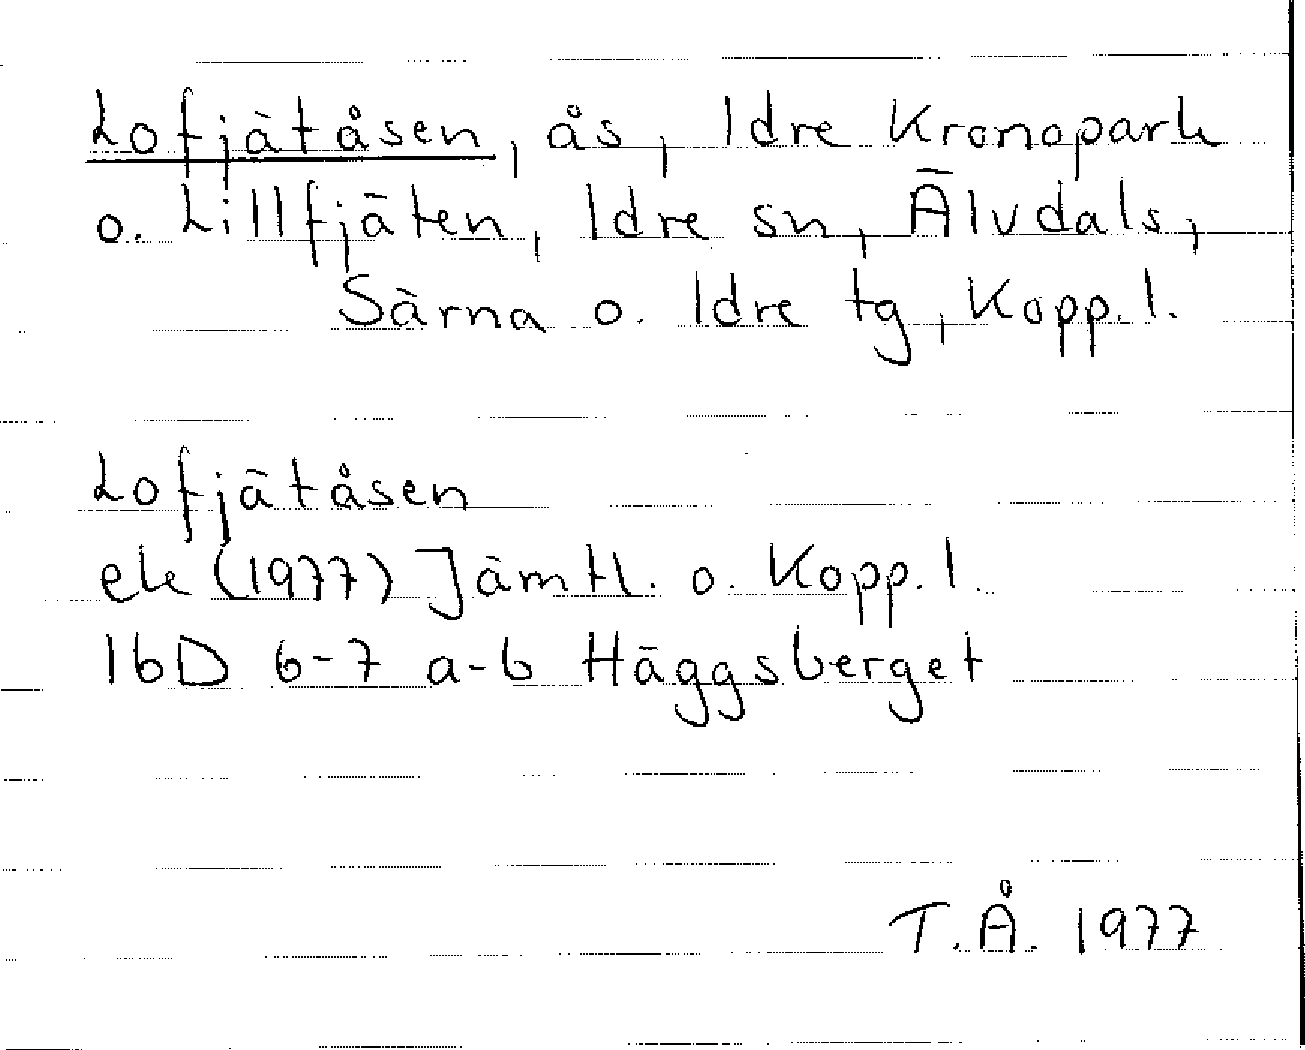 Lofjätåsen, ås, Idre Kronopark
o. Lillfjäten, Idre sn, Älvdals,
Särna o. Idre tg, Kopp. l.
Lofjätåsen
ek (1977) Jämtl. o. Kopp. l.
16D 6-7 a-b Häggsberget
T.Å. 1977